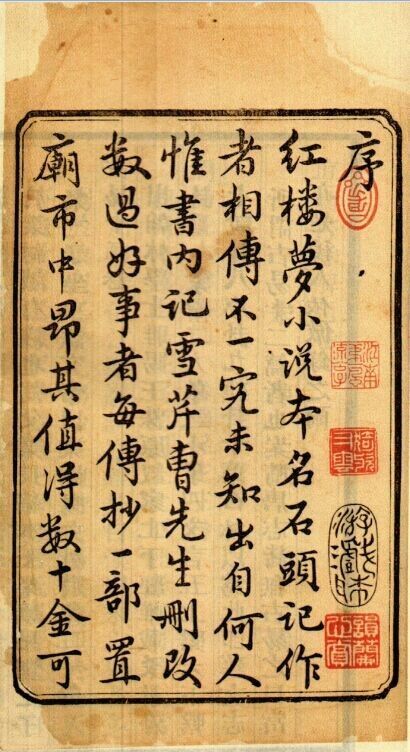 序
红楼夢小说本名石頭記作
者相傳不一究未知出自何人
惟書内記雪芹曹先生删改
数過好事者每傳抄一部置
廟市中昂其值得数十金可